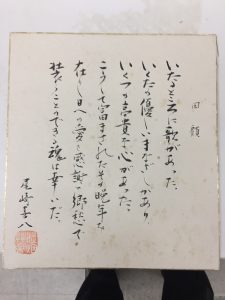 回顧
いたるところに歌があった。
いくたの優しいまなざしがあり、
いくつの高貴な心があった。
こうして富まされたその晩年を
在りし日への愛と感謝の郷愁で
装うことのできる魂は幸いだ。
尾崎喜八